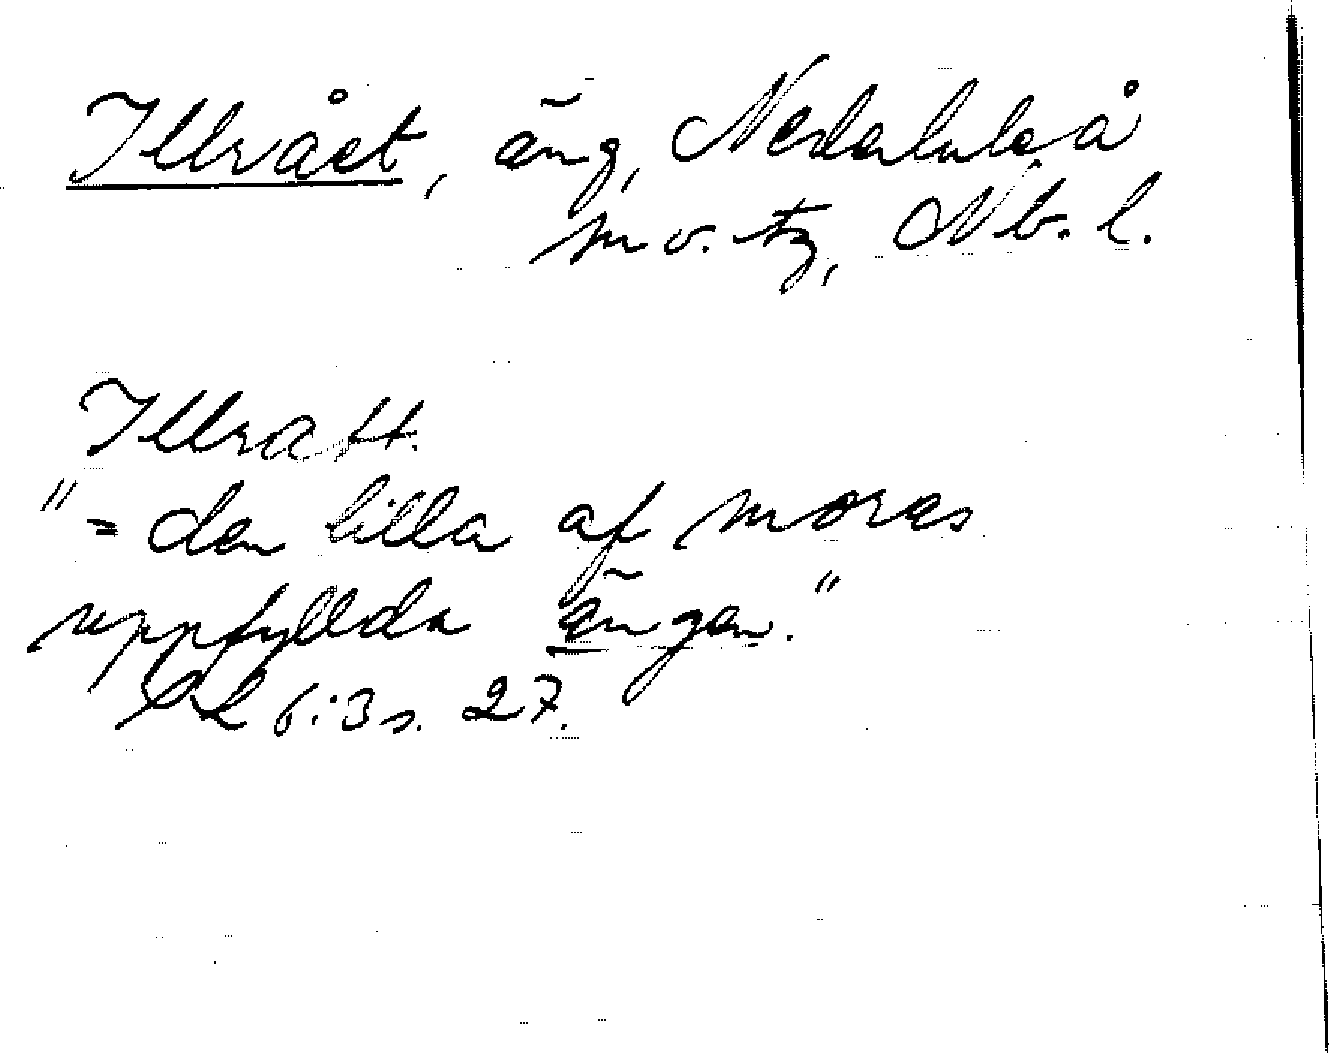 Illrået, äng, Nederluleå
Nb. l.
Illratt.
"= den lilla af moras
uppfyllda ängen."
6:3 s. 27.